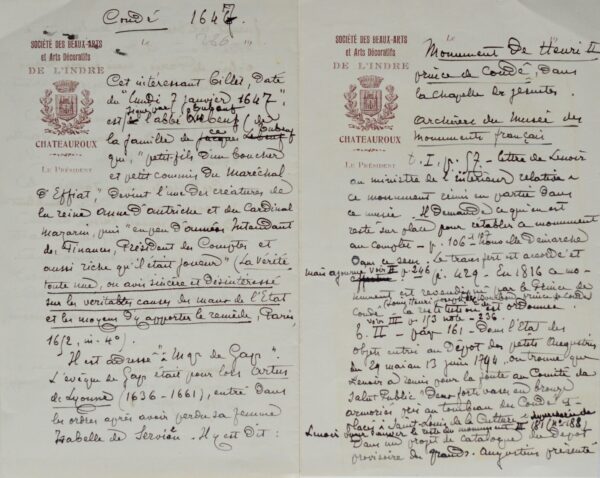 Condé 1647
SOCIÉTÉ DES BEAUX-ARTS
et Arts Décoratifs
DE L'INDRE
CHATEAUROUX
LE PRÉSIDENT
Le
Cet intéressant billet, daté
du "lundi 7 janvier 1647",
est de l'abbé (de
la famille de
qui, "petit fils d'un boucher
et petit commis du Maréchal
d'Effiat," devint l'une des créatures de
la reine Anne d'Autriche et du Cardinal
Mazarin, puis "en peu d'années Intendant
des Finances, Président des Comptes et
aussi riche qu'il était joueur" (La Vérité
toute nue, ou avis sincère et désintéressé
sur les véritables causes des maux de l'Etat
et les moyens d'y apporter le remède, Paris,
in-4°).
Il est adressé à "Mgr de Gap".
L'évêque de Gap était pour lors Artus
de Lyonne (1636-1661), entré dans
les ordres après avoir perdu sa femme
Isabelle de Servien. Il y est dit :
SOCIÉTÉ DES BEAUX-ARTS
et Arts Décoratifs
DE L'INDRE
CHATEAUROUX
LE PRÉSIDENT
Monument de Henri II
prince de Condé, dans
la chapelle des Jésuites
Archives du Musée des
Monuments français
t. I, p. 57 - lettre de Lenoir
au ministre de l'intérieur relative à
ce monument réuni en partie dans
ce musée. Il demande ce qui en
reste sur place pour rétablir ce monument
au complet - p. 106 - nouvelle démarche
dans ce sens. Le transport est accordé et
mais ajourné voir II p. 246 p. 429 - En 1816 ce mo-
nument est revendiqué par le Prince de
Condé - la restitution est ordonnée.
voir III p. 113 note - 236.
t. II - pag 161 - Dans l'Etat des
objets entrés au Dépôt des petits Augustins
du 29 mai au 13 juin 1794, on trouve que
Lenoir a remis pour la fonte au Comité de
Salut Public : Deux forts vases en bronze
armoriés
placés à Saint Louis de la Culture
Dans un projet de catalogue du Dépôt
provisoire des grands Augustins présenté